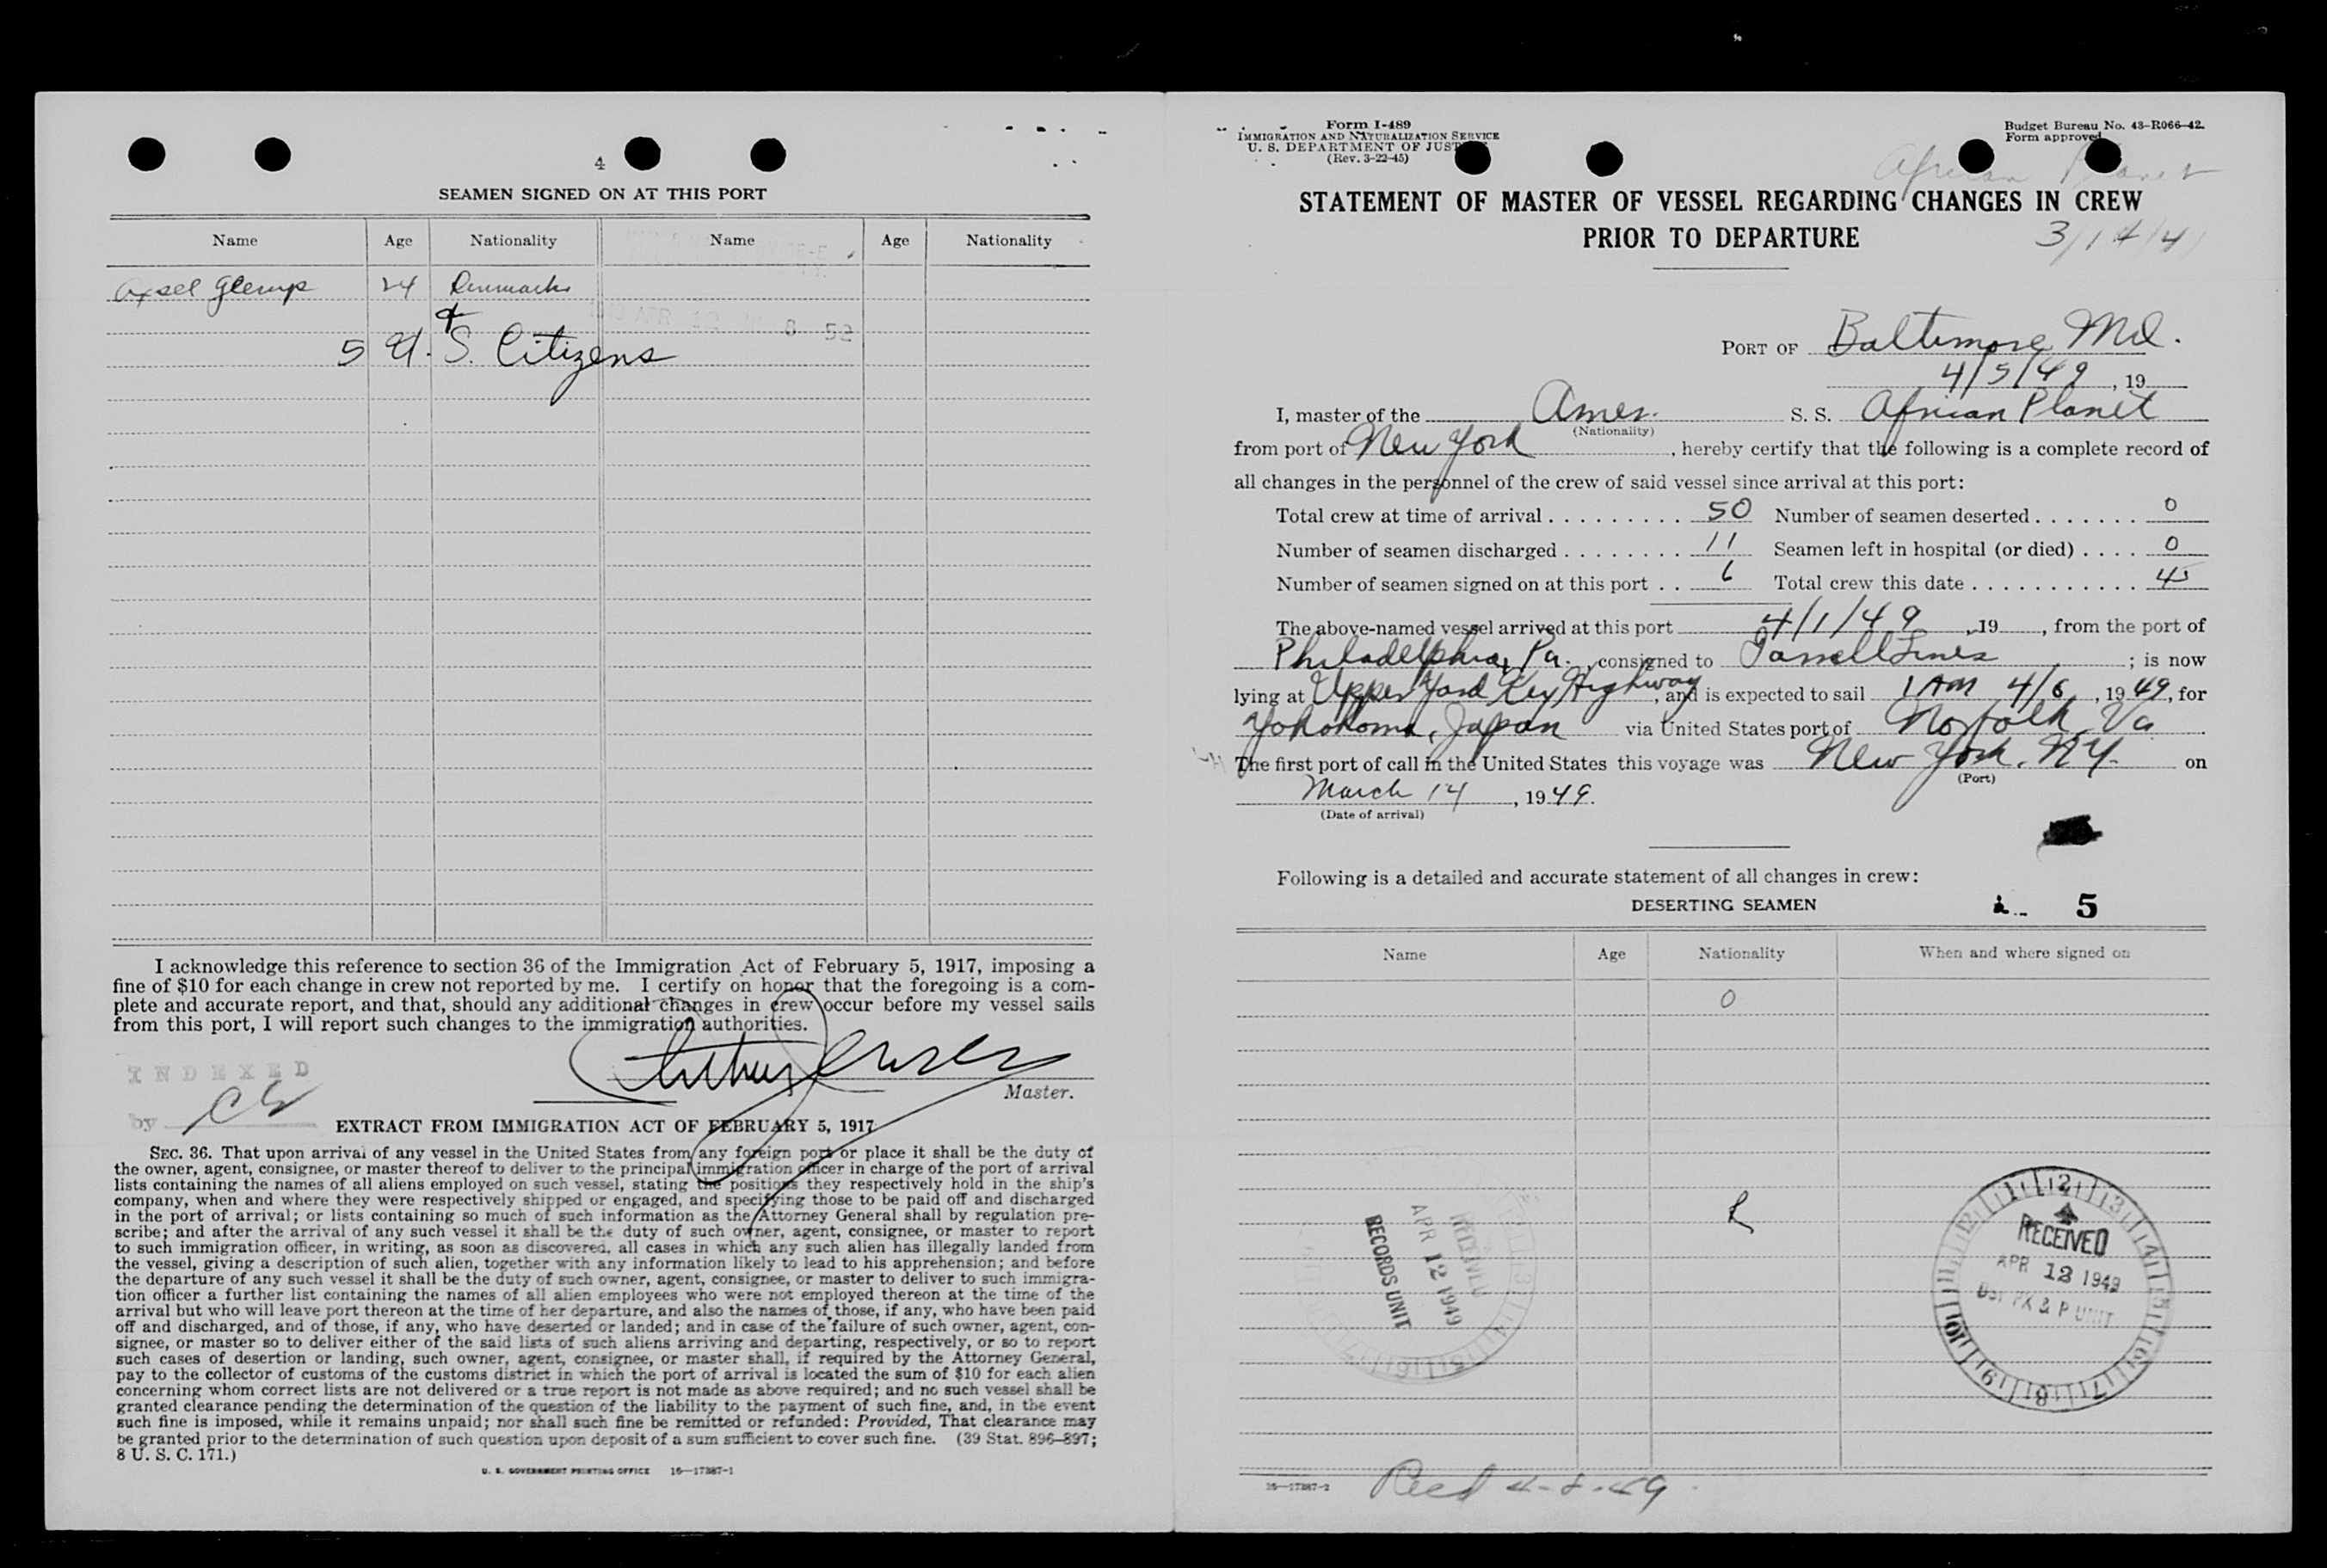 4
SEAMEN SIGNED ON AT THIS PORT
Name Age Nationality Name Age Nationality
Axsel Glerup 24 Denmark
+
5 U. S. Citizens
APR 12 8 52
I acknowledge this reference to section 36 of the Immigration Act of February 5, 1917, imposing a
fine of $10 for each change in crew not reported by me. I certify on honor that the foregoing is a com-
plete and accurate report, and that, should any additional changes in crew occur before my vessel sails
from this port, I will report such changes to the immigration authorities.
Arthur Jensen
Master.
INDEXED
by
EXTRACT FROM IMMIGRATION ACT OF FEBRUARY 5, 1917
SEC. 36. That upon arrival of any vessel in the United States from any foreign port or place it shall be the duty of
the owner, agent, consignee, or master thereof to deliver to the principal immigration officer in charge of the port of arrival
lists containing the names of all aliens employed on such vessel, stating the positions they respectively hold in the ship's
company, when and where they were respectively shipped or engaged, and specifying those to be paid off and discharged
in the port of arrival; or lists containing so much of such information as the Attorney General shall by regulation pre-
scribe; and after the arrival of any such vessel it shall be the duty of such owner, agent, consignee, or master to report
to such immigration officer, in writing, as soon as discovered, all cases in which any such alien has illegally landed from
the vessel, giving a description of such alien, together with any information likely to lead to his apprehension; and before
the departure of any such vessel it shall be the duty of such owner, agent, consignee, or master to deliver to such immigra-
tion officer a further list containing the names of all alien employees who were not employed thereon at the time of the
arrival but who will leave port thereon at the time of her departure, and also the names of those, if any, who have been paid
off and discharged, and of those, if any, who have deserted or landed; and in case of the failure of such owner, agent, con-
signee, or master so to deliver either of the said lists of such aliens arriving and departing, respectively, or so to report
such cases of desertion or landing, such owner, agent, consignee, or master shall, if required by the Attorney General,
pay to the collector of customs of the customs district in which the port of arrival is located the sum of $10 for each alien
concerning whom correct lists are not delivered or a true report is not made as above required; and no such vessel shall be
granted clearance pending the determination of the question of the liability to the payment of such fine, and, in the event
such fine is imposed, while it remains unpaid; nor shall such fine be remitted or refunded: Provided, That clearance may
be granted prior to the determination of such question upon deposit of a sum sufficient to cover such fine. (39 Stat. 896–897;
8 U. S. C. 171.)
U. S. GOVERNMENT PRINTING OFFICE 16—17387-1
Form I-489
IMMIGRATION AND NATURALIZATION SERVICE
U. S. DEPARTMENT OF JUSTICE
(Rev. 3-22-45)
Budget Bureau No. 43-R066-42.
Form approved
African Planet
STATEMENT OF MASTER OF VESSEL REGARDING CHANGES IN CREW
PRIOR TO DEPARTURE
3/14/4
PORT OF Baltimore Md.
4/5/49, 19
I, master of the Amer. S. S. African Planet
(Nationality)
from port of New York, hereby certify that the following is a complete record of
all changes in the personnel of the crew of said vessel since arrival at this port:
Total crew at time of arrival 50 Number of seamen deserted 0
Number of seamen discharged 11 Seamen left in hospital (or died) 0
Number of seamen signed on at this port 6 Total crew this date 45
The above-named vessel arrived at this port 4/1/49, 19, from the port of
Philadelphia, Pa., consigned to Farrell Lines; is now
lying at Upper Yard Key Highway, and is expected to sail 1 AM 4/6, 1949, for
Yokohoma, Japan via United States port of Norfolk, Va
The first port of call in the United States this voyage was New York, NY. on
(Port)
March 14, 1949.
(Date of arrival)
Following is a detailed and accurate statement of all changes in crew:
DESERTING SEAMEN
5
Name Age Nationality When and where signed on
0
R
RECEIVED
APR 12 1949
RECORDS UNIT
RECEIVED
APR 12 1949
P UNIT
16—17387-2
Recd 4-8-49